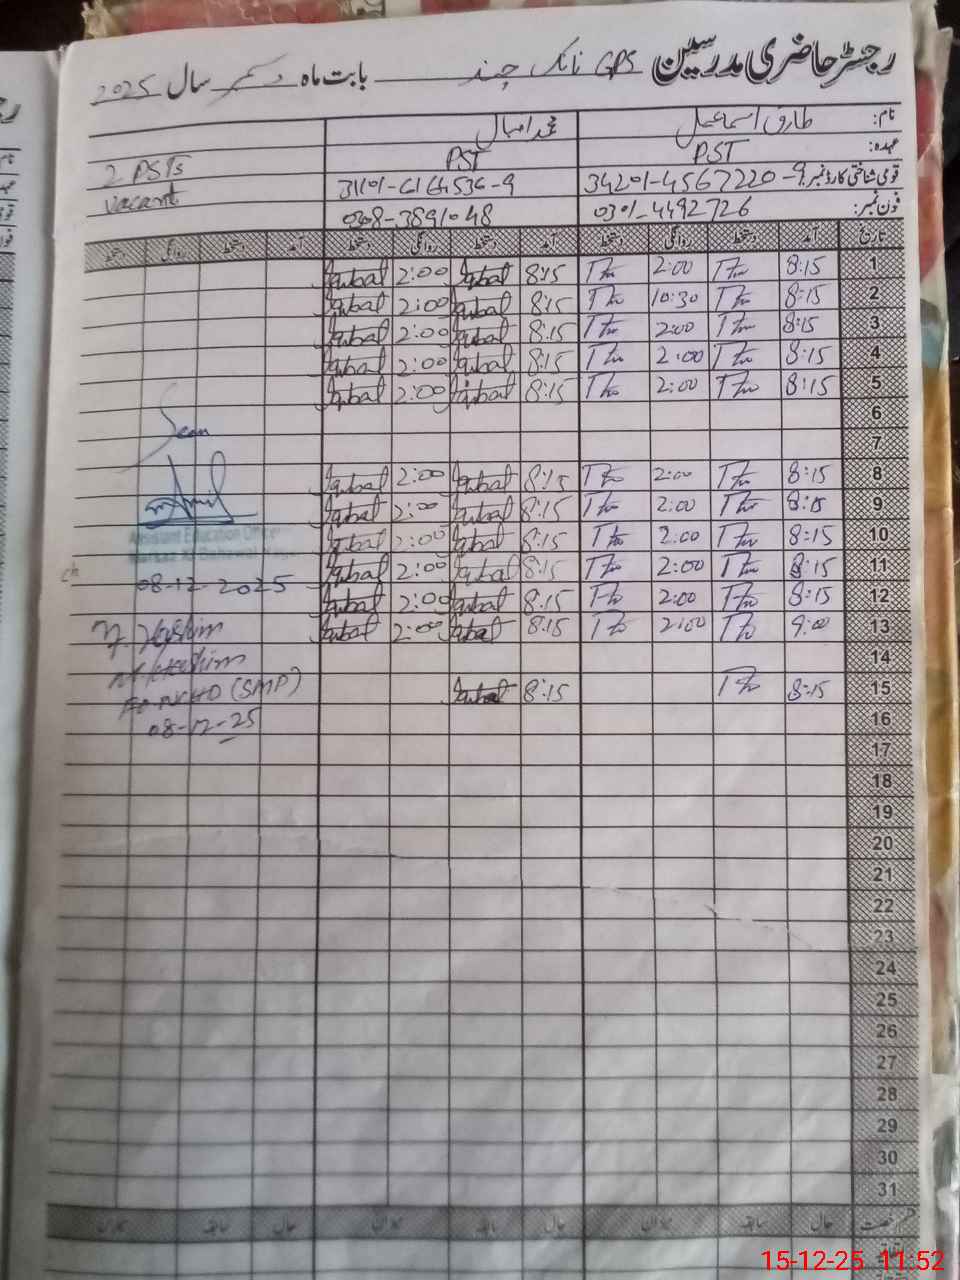 رجسٹر حاضری مدرسین GPS نانک چند بابت ماہ دسمبر سال 2025
نام: طارق اسماعیل محمد اقبال
عہدہ: PST PST 2 PSTs
قومی شناختی کارڈ نمبر: 34201-4567220-9 31101-6164536-9 vacant
فون نمبر: 0301-4492726 0308-3891048
تاریخ آمد دستخط روانگی دستخط آمد دستخط روانگی دستخط آمد دستخط روانگی دستخط
1 8:15 2:00 8:15 Iqbal 2:00 Iqbal
2 8:15 10:30 8:15 Iqbal 2:00 Iqbal
3 8:15 2:00 8:15 Iqbal 2:00 Iqbal
4 8:15 2:00 8:15 Iqbal 2:00 Iqbal
5 8:15 2:00 8:15 Iqbal 2:00 Iqbal
6
7
Seen
8 8:15 2:00 8:15 Iqbal 2:00 Iqbal
9 8:15 2:00 8:15 Iqbal 2:00 Iqbal
10 8:15 2:00 8:15 Iqbal 2:00 Iqbal
Assistant Education Officer
11 8:15 2:00 8:15 Iqbal 2:00 Iqbal
08-12-2025
12 8:15 2:00 8:15 Iqbal 2:00 Iqbal
13 9:00 2:00 8:15 Iqbal 2:00 Iqbal
M. Hashim
14
15 8:15 8:15 Iqbal
(SMP)
16
08-12-25
17
18
19
20
21
22
23
24
25
26
27
28
29
30
31
حال سابقہ میزان حال سابقہ میزان حال سابقہ میزان
15-12-25 11:52